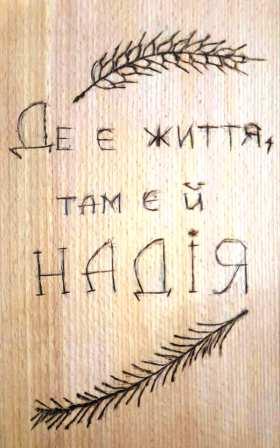 Де є життя,
там є й
НАДІЯ